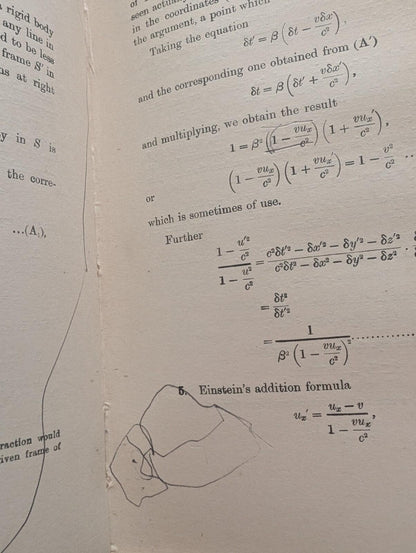 rigid body
any line in
d to be less
frame S' in
ns at right
y in S is
the corre-
...(A₁),
raction would
iven frame of
of
seen actual
in the coordinates
the argument, a point which
Taking the equation
δt' = β (δt − vδx/c²),
and the corresponding one obtained from (A')
δt = β (δt' + vδx'/c²),
and multiplying, we obtain the result
1 = β² (1 − vuₓ/c²) (1 + vuₓ'/c²),
or
(1 − vuₓ/c²) (1 + vuₓ'/c²) = 1 − v²/c² ..
which is sometimes of use.
Further
(1 − u'²/c²)/(1 − u²/c²) = (c²δt'² − δx'² − δy'² − δz'²)/(c²δt² − δx² − δy² − δz²) ·
= δt²/δt'²
= 1/(β² (1 − vuₓ/c²)²) ............
5. Einstein's addition formula
uₓ' = (uₓ − v)/(1 − vuₓ/c²),